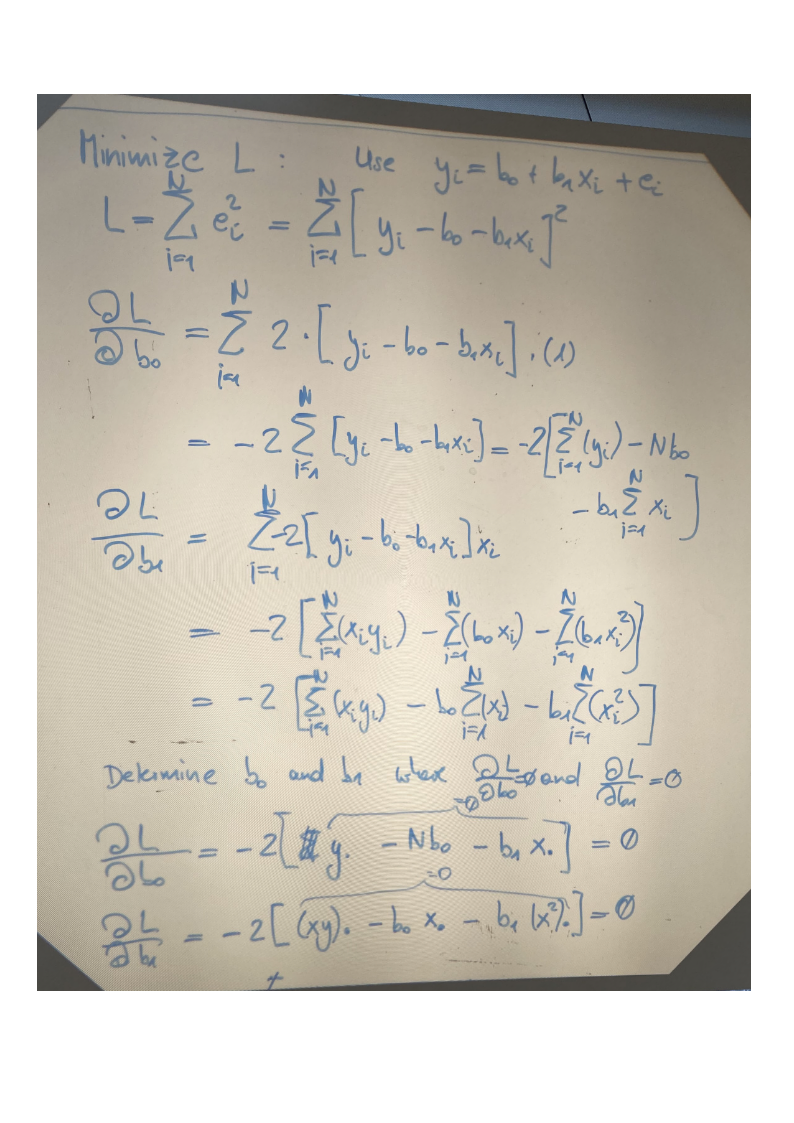 Minimize L : Use yᵢ = b₀ + b₁xᵢ + eᵢ
L = ∑ᵢ₌₁ᴺ eᵢ² = ∑ᵢ₌₁ᴺ [ yᵢ − b₀ − b₁xᵢ ]²
∂L/∂b₀ = ∑ᵢ₌₁ᴺ 2 · [ yᵢ − b₀ − b₁xᵢ ] . (1)
= −2 ∑ᵢ₌₁ᴺ [ yᵢ − b₀ − b₁xᵢ ] = −2[ ∑ᵢ₌₁ᴺ (yᵢ) − Nb₀
− b₁ ∑ᵢ₌₁ᴺ xᵢ ]
∂L/∂b₁ = ∑ᵢ₌₁ᴺ −2[ yᵢ − b₀ − b₁xᵢ ] xᵢ
= −2 [ ∑ᵢ₌₁ᴺ (xᵢyᵢ) − ∑ᵢ₌₁ᴺ (b₀xᵢ) − ∑ᵢ₌₁ᴺ (b₁xᵢ²) ]
= −2 [ ∑ᵢ₌₁ᴺ (xᵢyᵢ) − b₀ ∑ᵢ₌₁ᴺ (xᵢ) − b₁ ∑ᵢ₌₁ᴺ (xᵢ²) ]
Determine b₀ and b₁ where ∂L/∂b₀ = 0 and ∂L/∂b₁ = 0
=0
∂L/∂b₀ = −2[ y. − Nb₀ − b₁ x. ] = 0
=0
∂L/∂b₁ = −2[ (xy). − b₀ x. − b₁ (x²). ] = 0